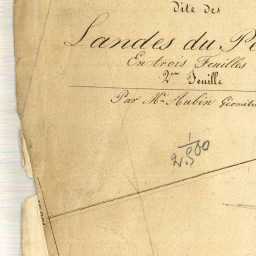 dite des
Landes du P
En trois Feuilles
2me Feuille
Par Mr. Aubin Géomètr
1
2500